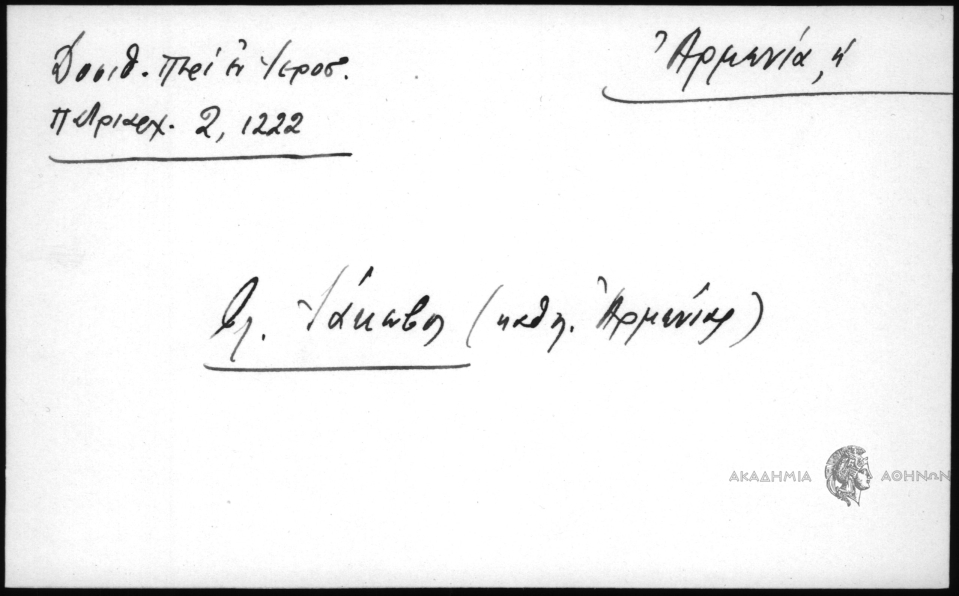 Δοσιθ. Περί ἐν Ἱεροσ.
Πατριαρχ. 2, 1222
Ἀρμενία, ἡ
Βλ. Ἰάκωβος (καθολ. Ἀρμενίας)
ΑΚΑΔΗΜΙΑ ΑΘΗΝΩΝ